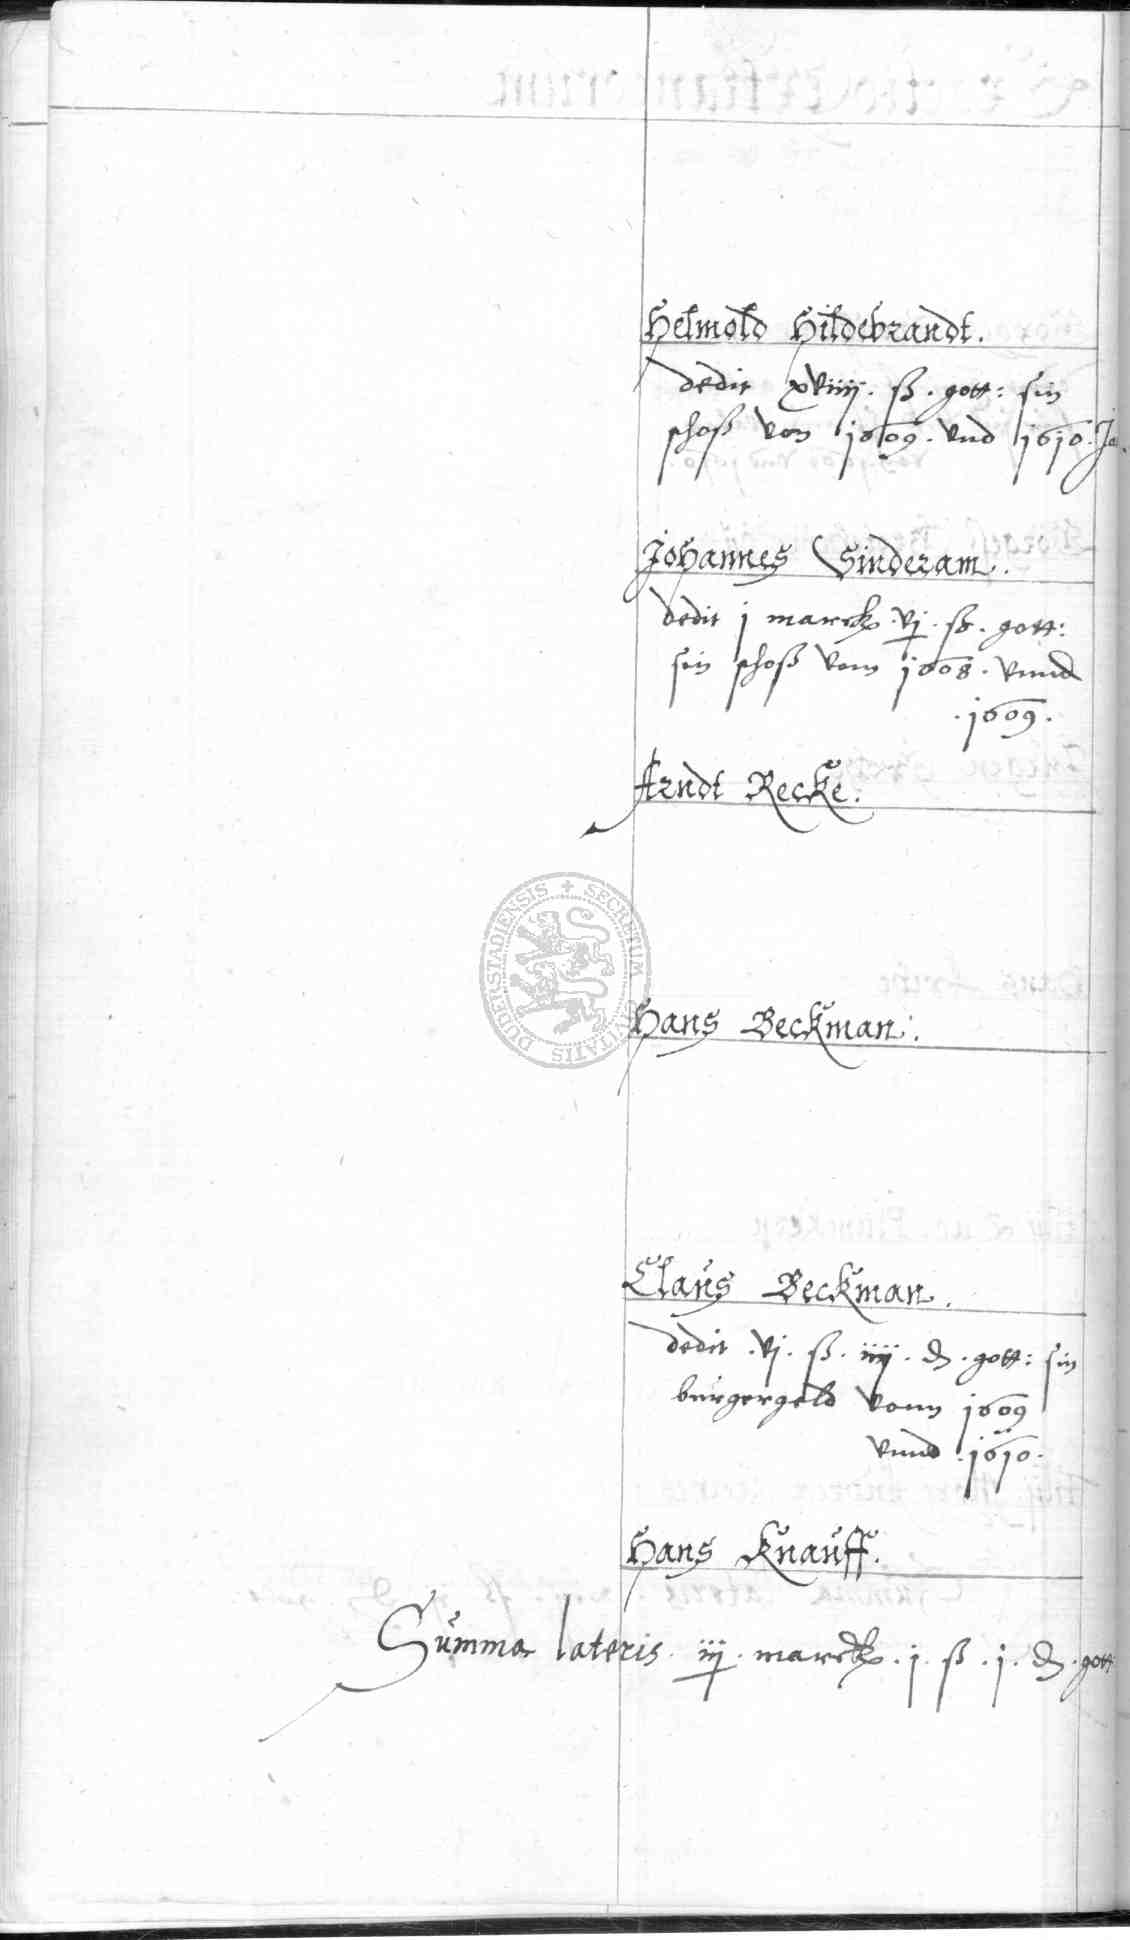 Helmold Hildebrandt.
dedit xviiij. ß. gott: sin
schoß von 1609. vnd 1610. Ja
Johannes Sinderam.
dedit j marck vj ß. gott:
sin schoß vom 1608. vnnd
.1609.
Arndt Recke.
DUDERSTADIENSIS + SECRETUM CIVITATIS
Hans Beckman.
Claus Beckman.
dedit .vj. ß. iiij. d. gott: sin
burgergeld vonn 1609
vnnd .1610.
Hans Knauff.
Summa lateris. iij. marck. j. ß. j. d. gott